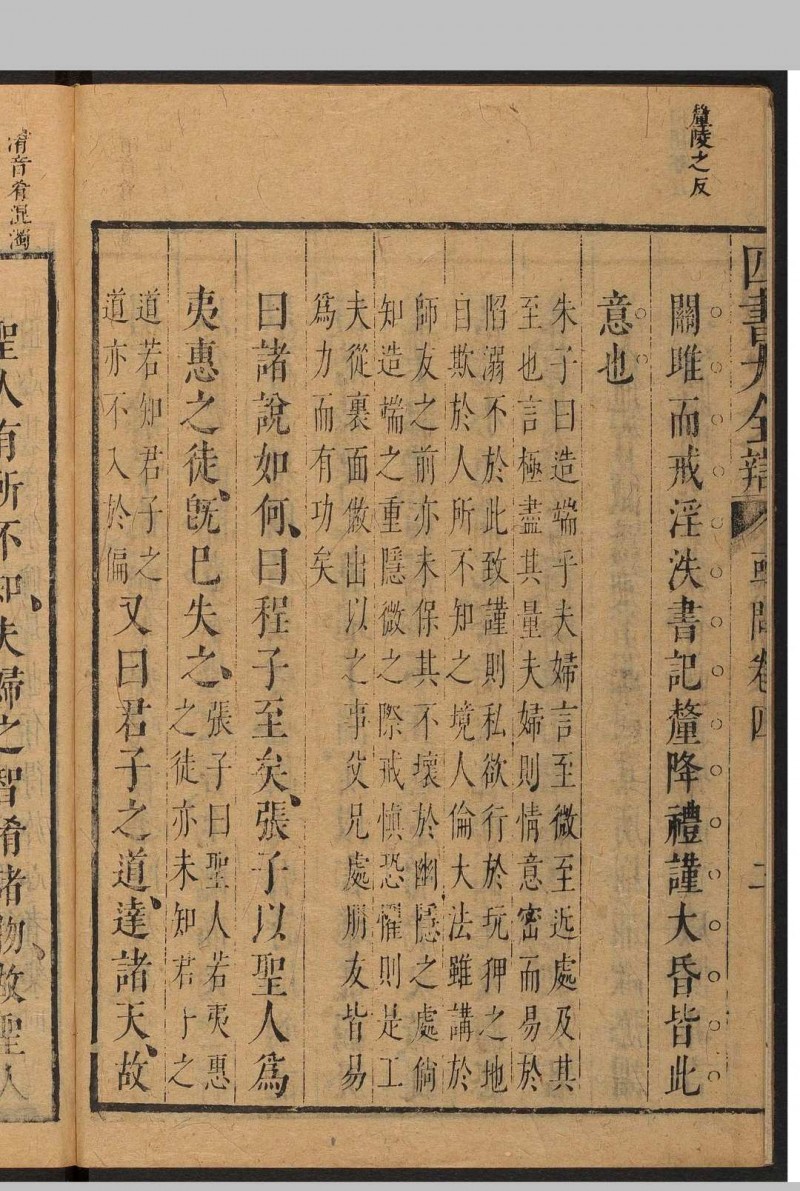 釐陵之反
四書大全辯 或問卷四 二
關雎而戒淫泆書記釐降禮謹大昏皆此
意也
朱子曰造端乎夫婦言至微至近處及其
至也言極盡其量夫婦則情意密而易於
陷溺不於此致謹則私欲行於玩狎之地
自欺於人所不知之境人倫大法雖講於
師友之前亦未保其不壞於幽隱之處倘
知造端之重隱微之際戒慎恐懼則是工
夫從裏面做出以之事父兄處朋友皆易
為力而有功矣
曰諸說如何曰程子至矣張子以聖人為
夷惠之徒既已失之張子曰聖人若夷惠
之徒亦未知君子之
道若知君子之
道亦不入於偏又曰君子之道達諸天故
淆音肴混濁
聖人有所不知夫婦之智淆諸物故聖人